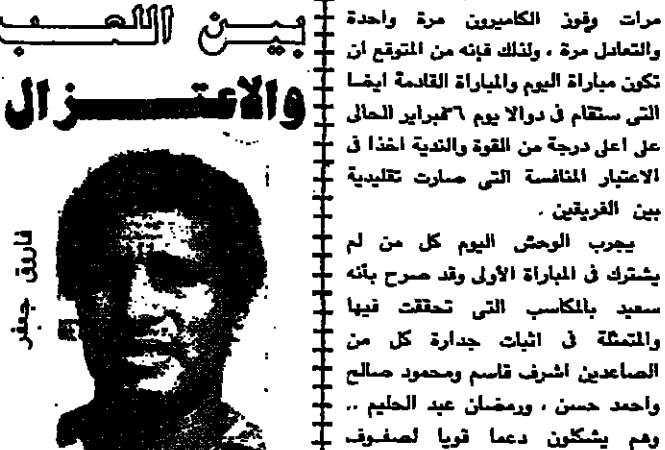 بين اللعب
والاعتزال
فاروق جعفر
مرات وفوز الكاميرون مرة واحدة
والتعادل مرة ، ولذلك فإنه من المتوقع ان
تكون مباراة اليوم والمباراة القادمة ايضا
التى ستقام فى دوالا يوم ٦ فبراير الحالى
على اعلى درجة من القوة والندية اخذا فى
الاعتبار المنافسة التى صارت تقليدية
بين الفريقين .
يجرب الوحش اليوم كل من لم
يشترك فى المباراة الأولى وقد صرح بأنه
سعيد بالمكاسب التى تحققت فيها
والمتمثلة فى اثبات جدارة كل من
الصاعدين اشرف قاسم ومحمود صالح
واحمد حسن ، ورمضان عبد الحليم ..
وهم يشكلون دعما قويا لصفوف